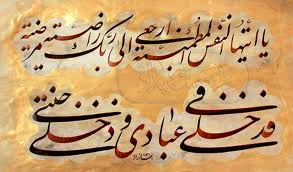 يا ايتها النفس المطمئنة ارجعى الى ربك راضية مرضية
فادخلى فى عبادى وادخلى جنتى